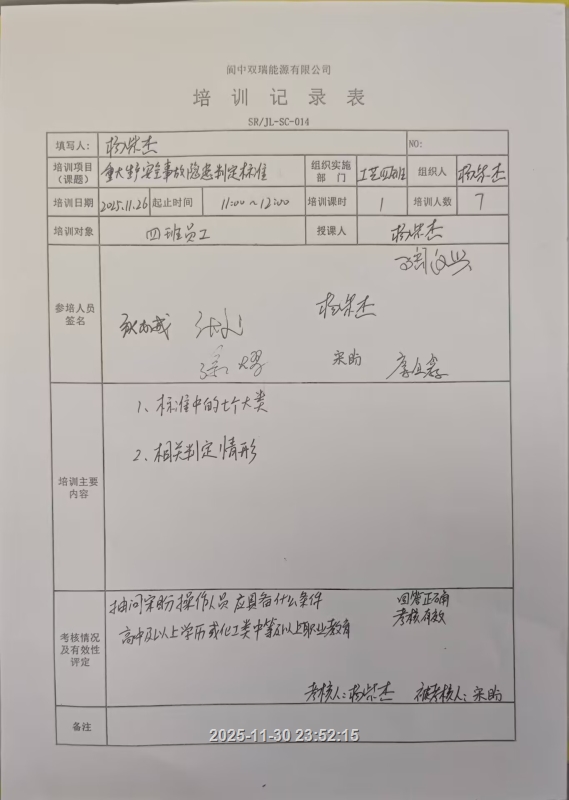 阆中双瑞能源有限公司
培训记录表
SR/JL-SC-014
填写人： 杨荣杰 NO:
培训项目（课题） 重大生产安全事故隐患判定标准 组织实施部门 工艺四班 组织人 杨荣杰
培训日期 2025.11.26 起止时间 11:00~12:00 培训课时 1 培训人数 7
培训对象 四班员工 授课人 杨荣杰
参培人员签名
杨荣杰
宋盼
培训主要内容
1、标准中的七个大类
2、相关判定情形
考核情况及有效性评定
抽问宋盼操作人员应具备什么条件 回答正确
高中及以上学历或化工类中等及以上职业教育 考核有效
考核人：杨荣杰 被考核人：宋盼
备注
2025-11-30 23:52:15